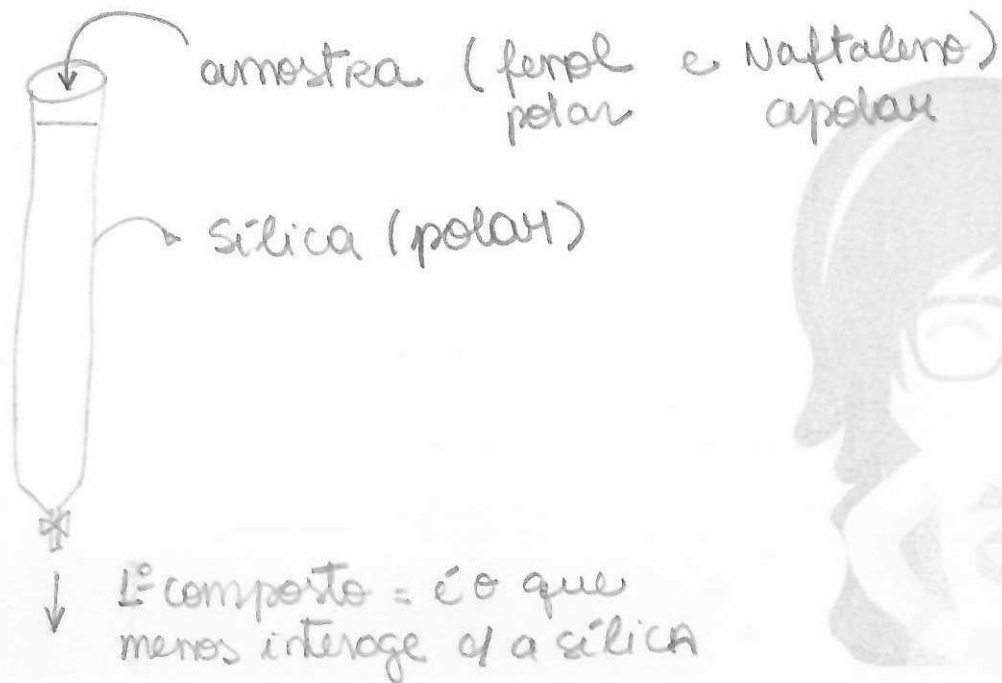 amostra (fenol e Naftaleno)
polar apolar
sílica (polar)
1º composto = é o que
menos interage c/ a sílica